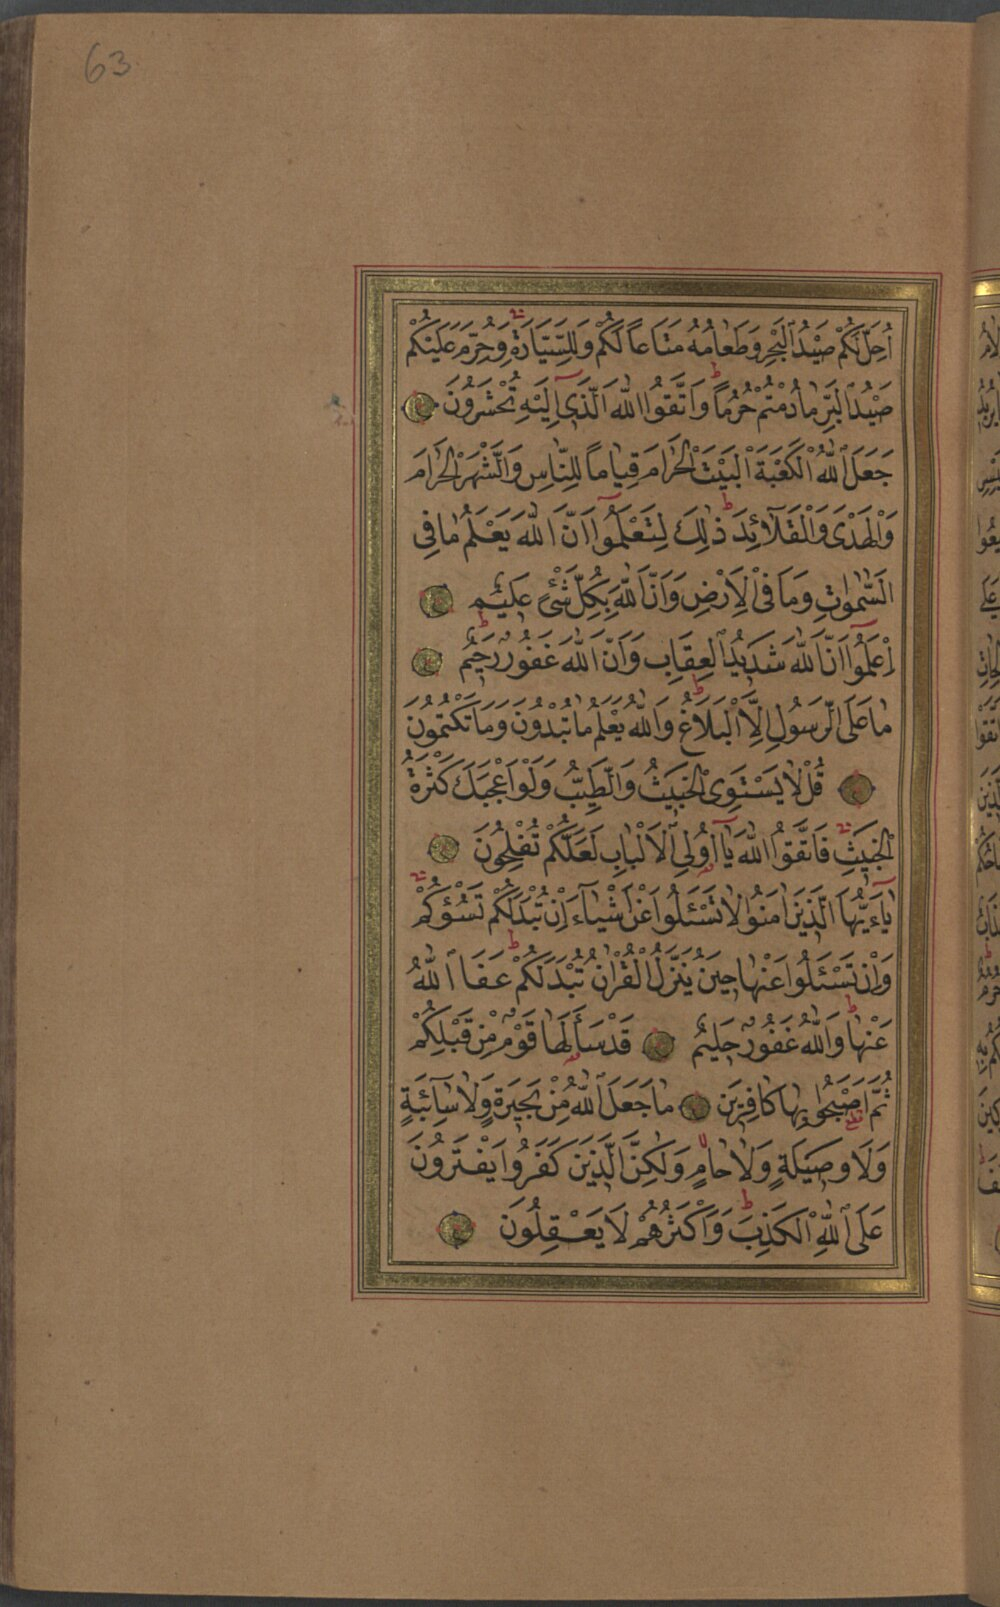 63
اُحِلَّ لَكُمْ صَيْدُ الْبَحْرِ وَطَعَامُهُ مَتَاعاً لَكُمْ وَلِلسَّيَّارَةِ وَحُرِّمَ عَلَيْكُمْ
صَيْدُ الْبَرِّ مَا دُمْتُمْ حُرُماً وَاتَّقُوا اللّٰهَ الَّذٖٓى اِلَيْهِ تُحْشَرُونَ
جَعَلَ اللّٰهُ الْكَعْبَةَ الْبَيْتَ الْحَرَامَ قِيَاماً لِلنَّاسِ وَالشَّهْرَ الْحَرَامَ
وَالْهَدْىَ وَالْقَلَٓائِدَ ذٰلِكَ لِتَعْلَمُٓوا اَنَّ اللّٰهَ يَعْلَمُ مَا فِى
السَّمٰوَاتِ وَمَا فِى الْاَرْضِ وَاَنَّ اللّٰهَ بِكُلِّ شَىْءٍ عَلٖيمٌ
اِعْلَمُٓوا اَنَّ اللّٰهَ شَدٖيدُ الْعِقَابِ وَاَنَّ اللّٰهَ غَفُورٌ رَحٖيمٌ
مَا عَلَى الرَّسُولِ اِلَّا الْبَلَاغُ وَاللّٰهُ يَعْلَمُ مَا تُبْدُونَ وَمَا تَكْتُمُونَ
قُلْ لَا يَسْتَوِى الْخَبٖيثُ وَالطَّيِّبُ وَلَوْ اَعْجَبَكَ كَثْرَةُ
الْخَبٖيثِ فَاتَّقُوا اللّٰهَ يَٓا اُولِى الْاَلْبَابِ لَعَلَّكُمْ تُفْلِحُونَ
يَٓا اَيُّهَا الَّذٖينَ اٰمَنُوا لَا تَسْـَٔلُوا عَنْ اَشْيَٓاءَ اِنْ تُبْدَ لَكُمْ تَسُؤْكُمْ
وَاِنْ تَسْـَٔلُوا عَنْهَا حٖينَ يُنَزَّلُ الْقُرْاٰنُ تُبْدَ لَكُمْ عَفَا اللّٰهُ
عَنْهَا وَاللّٰهُ غَفُورٌ حَلٖيمٌ قَدْ سَاَلَهَا قَوْمٌ مِنْ قَبْلِكُمْ
ثُمَّ اَصْبَحُوا بِهَا كَافِرٖينَ مَا جَعَلَ اللّٰهُ مِنْ بَحٖيرَةٍ وَلَا سَٓائِبَةٍ
وَلَا وَصٖيلَةٍ وَلَا حَامٍ وَلٰكِنَّ الَّذٖينَ كَفَرُوا يَفْتَرُونَ
عَلَى اللّٰهِ الْكَذِبَ وَاَكْثَرُهُمْ لَا يَعْقِلُونَ